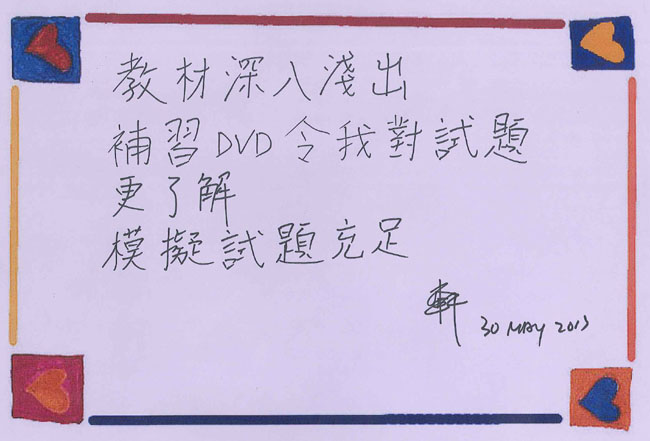 教材深入淺出
補習DVD令我對試題
更了解
模擬試題充足
軒 30 MAY 2013